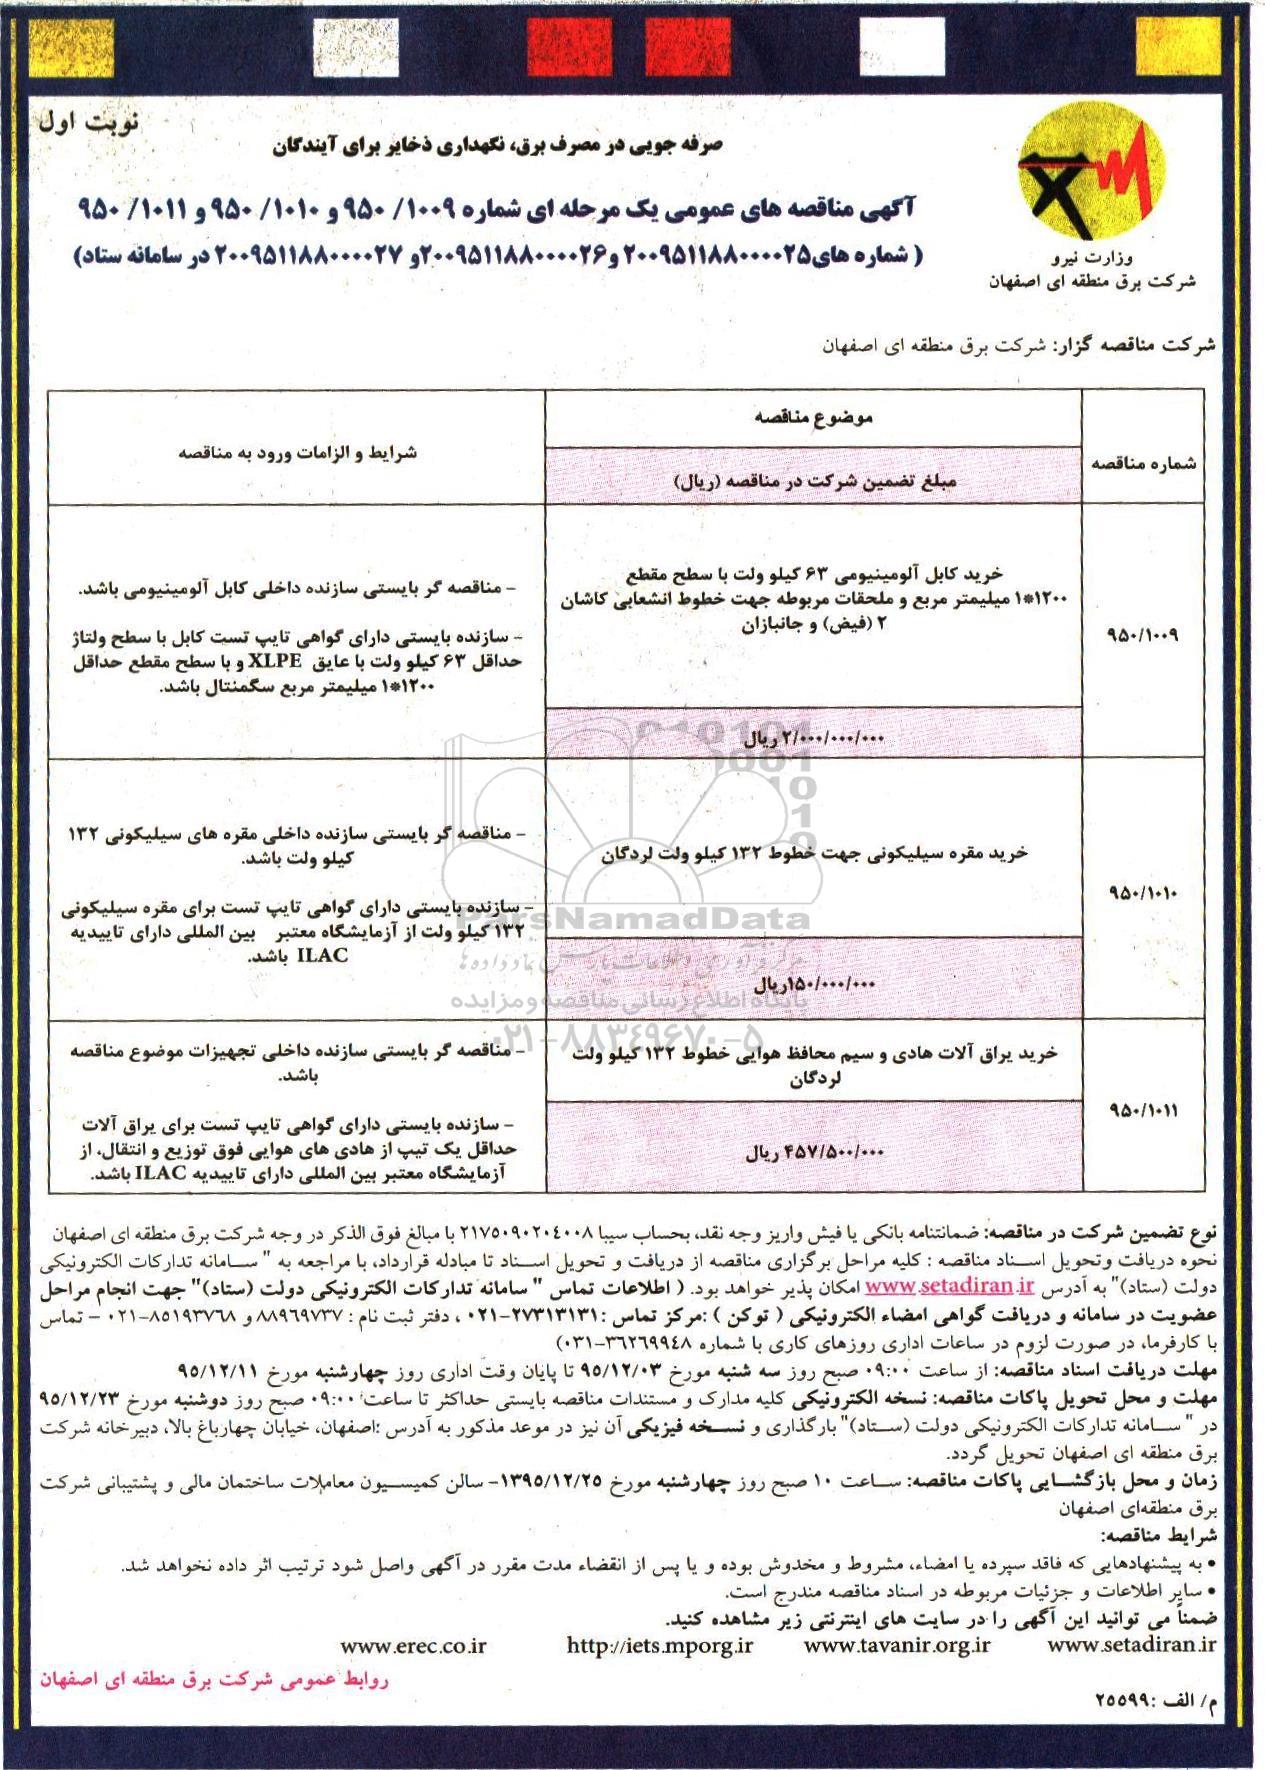 نوبت اول
صرفه جویی در مصرف برق، نگهداری ذخایر برای آیندگان
آگهی مناقصه های عمومی یک مرحله ای شماره ۹۵۰/۱۰۰۹ و ۹۵۰/۱۰۱۰ و ۹۵۰/۱۰۱۱
( شماره های۲۰۰۹۵۱۱۸۸۰۰۰۰۲۵ و۲۰۰۹۵۱۱۸۸۰۰۰۰۲۶و ۲۰۰۹۵۱۱۸۸۰۰۰۰۲۷ در سامانه ستاد)
وزارت نیرو
شرکت برق منطقه ای اصفهان
شرکت مناقصه گزار: شرکت برق منطقه ای اصفهان
شماره مناقصه
موضوع مناقصه
مبلغ تضمین شرکت در مناقصه (ریال)
شرایط و الزامات ورود به مناقصه
۹۵۰/۱۰۰۹
خرید کابل آلومینیومی ۶۳ کیلو ولت با سطح مقطع
۱۲۰۰*۱ میلیمتر مربع و ملحقات مربوطه جهت خطوط انشعابی کاشان
۲ (فیض) و جانبازان
۲/۰۰۰/۰۰۰/۰۰۰ ریال
- مناقصه گر بایستی سازنده داخلی کابل آلومینیومی باشد.
- سازنده بایستی دارای گواهی تایپ تست کابل با سطح ولتاژ
حداقل ۶۳ کیلو ولت با عایق XLPE و با سطح مقطع حداقل
۱۲۰۰*۱ میلیمتر مربع سگمنتال باشد.
۹۵۰/۱۰۱۰
خرید مقره سیلیکونی جهت خطوط ۱۳۲ کیلو ولت لردگان
۱۵۰/۰۰۰/۰۰۰ریال
- مناقصه گر بایستی سازنده داخلی مقره های سیلیکونی ۱۳۲
کیلو ولت باشد.
- سازنده بایستی دارای گواهی تایپ تست برای مقره سیلیکونی
۱۳۲ کیلو ولت از آزمایشگاه معتبر بین المللی دارای تاییدیه
ILAC باشد.
۹۵۰/۱۰۱۱
خرید یراق آلات هادی و سیم محافظ هوایی خطوط ۱۳۲ کیلو ولت
لردگان
۴۵۷/۵۰۰/۰۰۰ ریال
- مناقصه گر بایستی سازنده داخلی تجهیزات موضوع مناقصه
باشد.
- سازنده بایستی دارای گواهی تایپ تست برای یراق آلات
حداقل یک تیپ از هادی های هوایی فوق توزیع و انتقال، از
آزمایشگاه معتبر بین المللی دارای تاییدیه ILAC باشد.
ParsNamadData
پایگاه اطلاع رسانی مناقصه و مزایده
۰۲۱-۸۸۳۴۹۶۷۰-۵
نوع تضمین شرکت در مناقصه: ضمانتنامه بانکی یا فیش واریز وجه نقد، بحساب سیبا ۲۱۷۵۰۹۰۲۰۴۰۰۸ با مبالغ فوق الذکر در وجه شرکت برق منطقه ای اصفهان
نحوه دریافت وتحویل اسناد مناقصه : کلیه مراحل برگزاری مناقصه از دریافت و تحویل اسناد تا مبادله قرارداد، با مراجعه به " سامانه تدارکات الکترونیکی
دولت (ستاد)" به آدرس www.setadiran.ir امکان پذیر خواهد بود. ( اطلاعات تماس " سامانه تدارکات الکترونیکی دولت (ستاد)" جهت انجام مراحل
عضویت در سامانه و دریافت گواهی امضاء الکترونیکی ( توکن ) :مرکز تماس :۲۷۳۱۳۱۳۱-۰۲۱ ، دفتر ثبت نام : ۸۸۹۶۹۷۳۷ و ۸۵۱۹۳۷۶۸-۰۲۱ - تماس
با کارفرما، در صورت لزوم در ساعات اداری روزهای کاری با شماره ۳۶۲۶۹۹۴۸-۰۳۱)
مهلت دریافت اسناد مناقصه: از ساعت ۰۹:۰۰ صبح روز سه شنبه مورخ ۹۵/۱۲/۰۳ تا پایان وقت اداری روز چهارشنبه مورخ ۹۵/۱۲/۱۱
مهلت و محل تحویل پاکات مناقصه: نسخه الکترونیکی کلیه مدارک و مستندات مناقصه بایستی حداکثر تا ساعت ۰۹:۰۰ صبح روز دوشنبه مورخ ۹۵/۱۲/۲۳
در " سامانه تدارکات الکترونیکی دولت (ستاد)" بارگذاری و نسخه فیزیکی آن نیز در موعد مذکور به آدرس :اصفهان، خیابان چهارباغ بالا، دبیرخانه شرکت
برق منطقه ای اصفهان تحویل گردد.
زمان و محل بازگشایی پاکات مناقصه: ساعت ۱۰ صبح روز چهارشنبه مورخ ۱۳۹۵/۱۲/۲۵- سالن کمیسیون معاملات ساختمان مالی و پشتیبانی شرکت
برق منطقه‌ای اصفهان
شرایط مناقصه:
• به پیشنهادهایی که فاقد سپرده یا امضاء، مشروط و مخدوش بوده و یا پس از انقضاء مدت مقرر در آگهی واصل شود ترتیب اثر داده نخواهد شد.
• سایر اطلاعات و جزئیات مربوطه در اسناد مناقصه مندرج است.
ضمناً می توانید این آگهی را در سایت های اینترنتی زیر مشاهده کنید.
www.setadiran.ir www.tavanir.org.ir http://iets.mporg.ir www.erec.co.ir
روابط عمومی شرکت برق منطقه ای اصفهان
م/ الف :۲۵۵۹۹